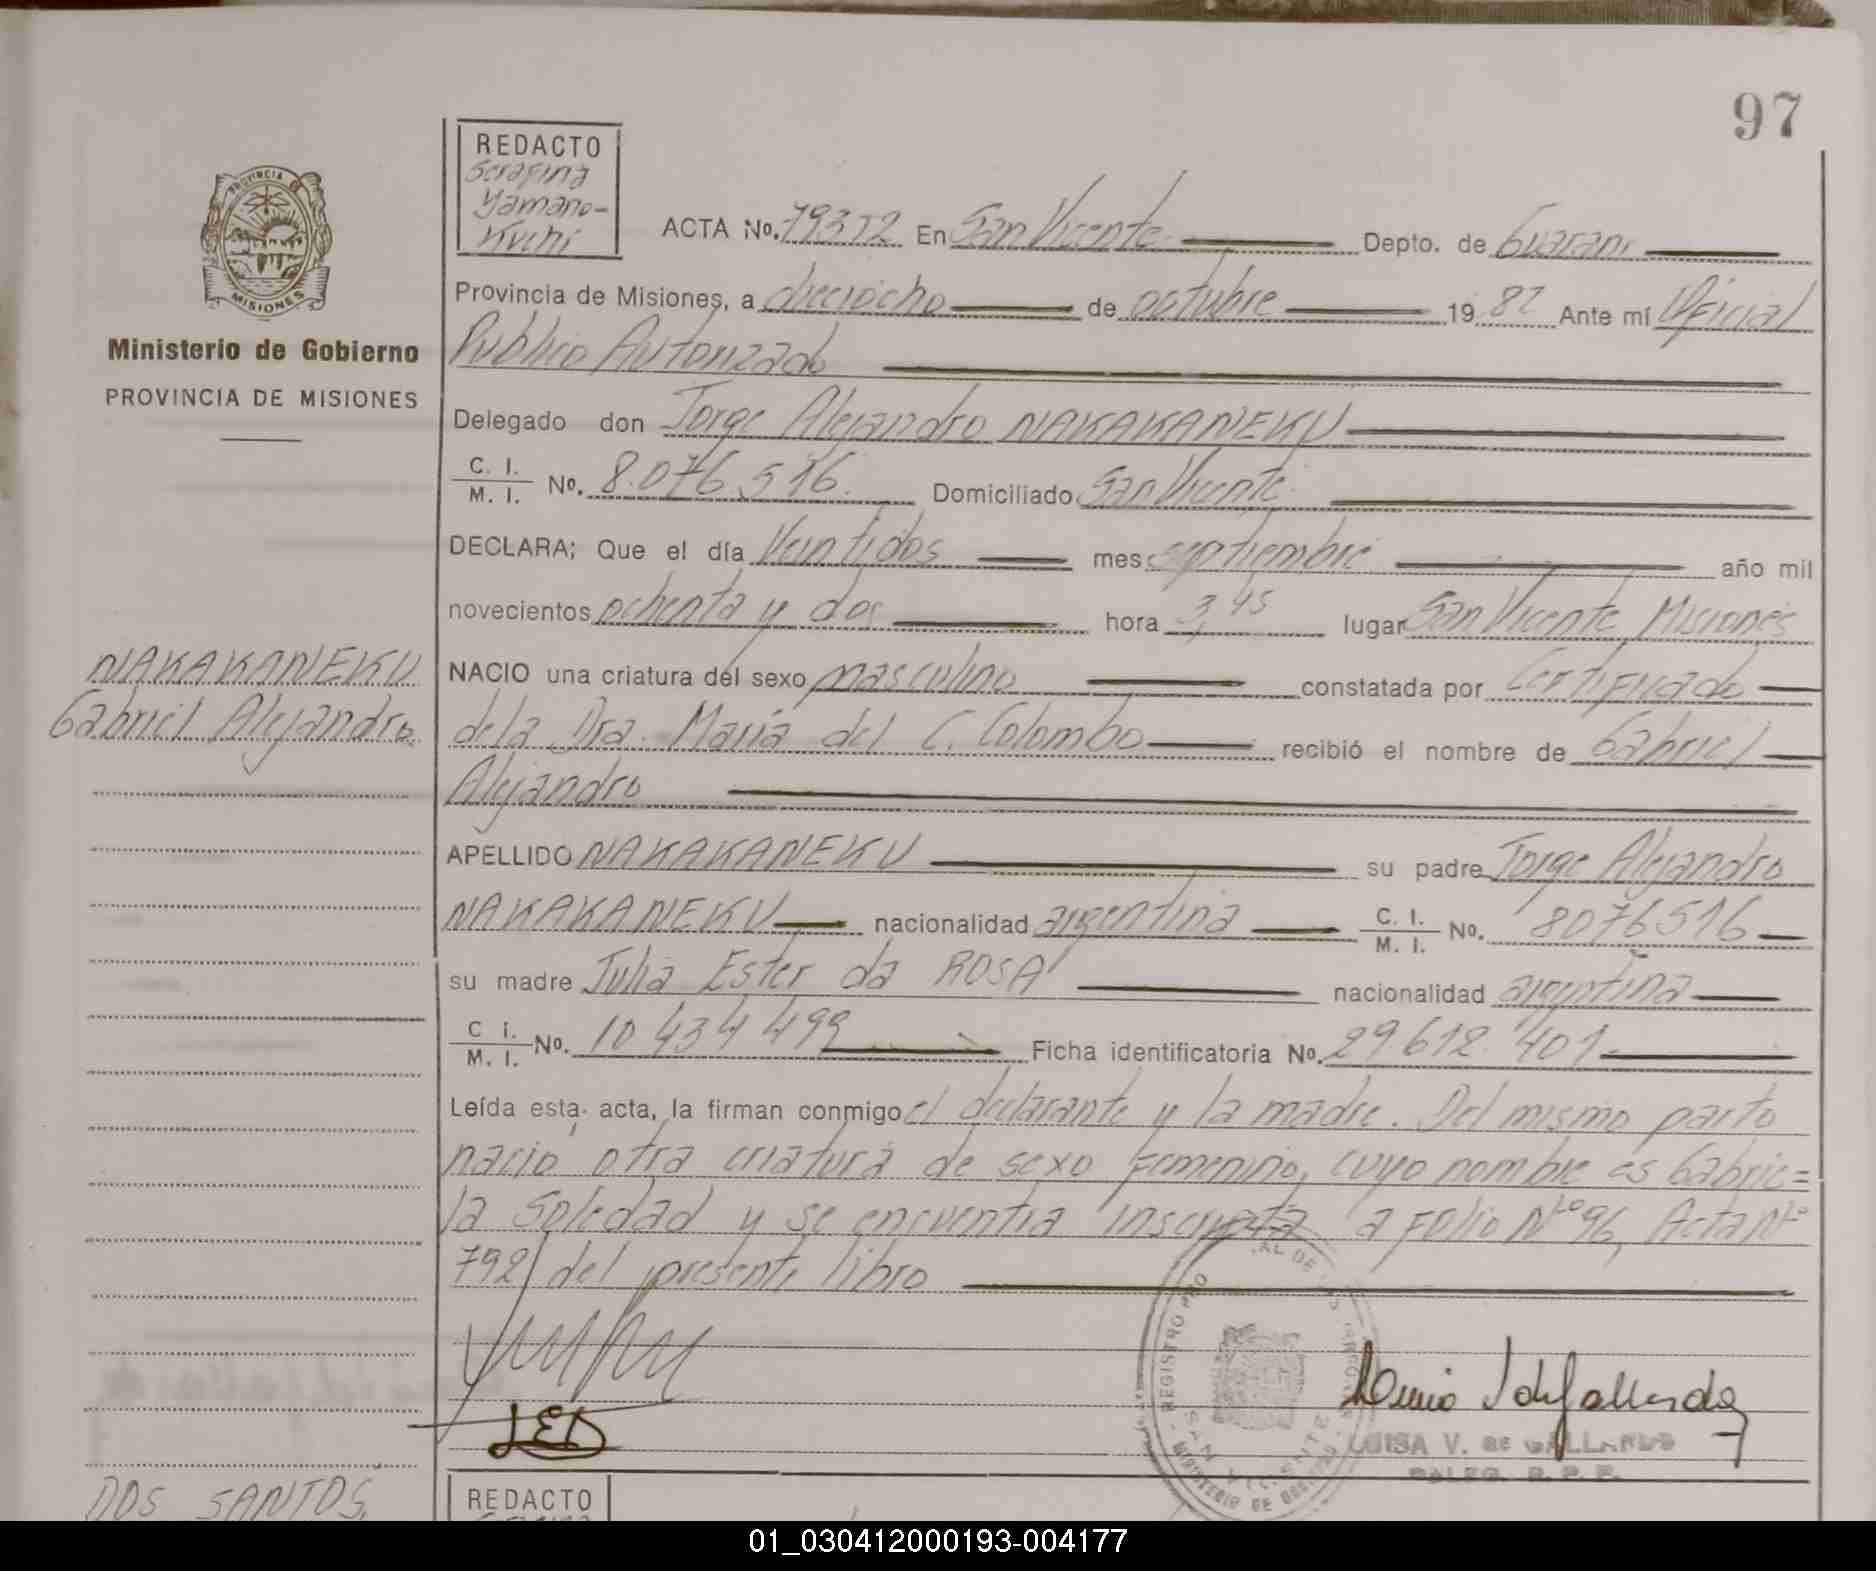 97
REDACTO
Serafina
Yamano-
Kuchi
PROVINCIA DE
MISIONES
Ministerio de Gobierno
PROVINCIA DE MISIONES
ACTA No. En San Vicente Depto. de Guarani
Provincia de Misiones, a dieciocho de octubre 19 82 Ante mí Oficial
Público Autorizado
Delegado don Jorge Alejandro NAKAKANEKU
C. I.
M. I. No. 8.076.516. Domiciliado San Vicente.
DECLARA; Que el día Veintidos mes septiembre año mil
novecientos ochenta y dos hora 3,45 lugar San Vicente Misiones
NAKAKANEKU
Gabriel Alejandro.
NACIO una criatura del sexo masculino constatada por Certificado
de la Dra. María del C. Colombo recibió el nombre de Gabriel
Alejandro
APELLIDO NAKAKANEKU su padre Jorge Alejandro
NAKAKANEKU nacionalidad argentina C. I.
M. I. No. 8076516
su madre Julia Ester da ROSA nacionalidad argentina
C i.
M. I. No. 10 434 499 Ficha identificatoria No. 29612.401.
Leída esta acta, la firman conmigo el declarante y la madre. Del mismo parto
nacio otra criatura de sexo Femenino, cuyo nombre es Gabrie=
la Soledad y se encuentra inscripta a Folio Nº 96, Acta Nº
792/ del presente libro
REGISTRO
SAN VICENTE
MINISTERIO DE GOBIERNO
LED
LUISA V. de GALLARDO
DELEG. R. P. P.
DOS SANTOS,
REDACTO
01_030412000193-004177